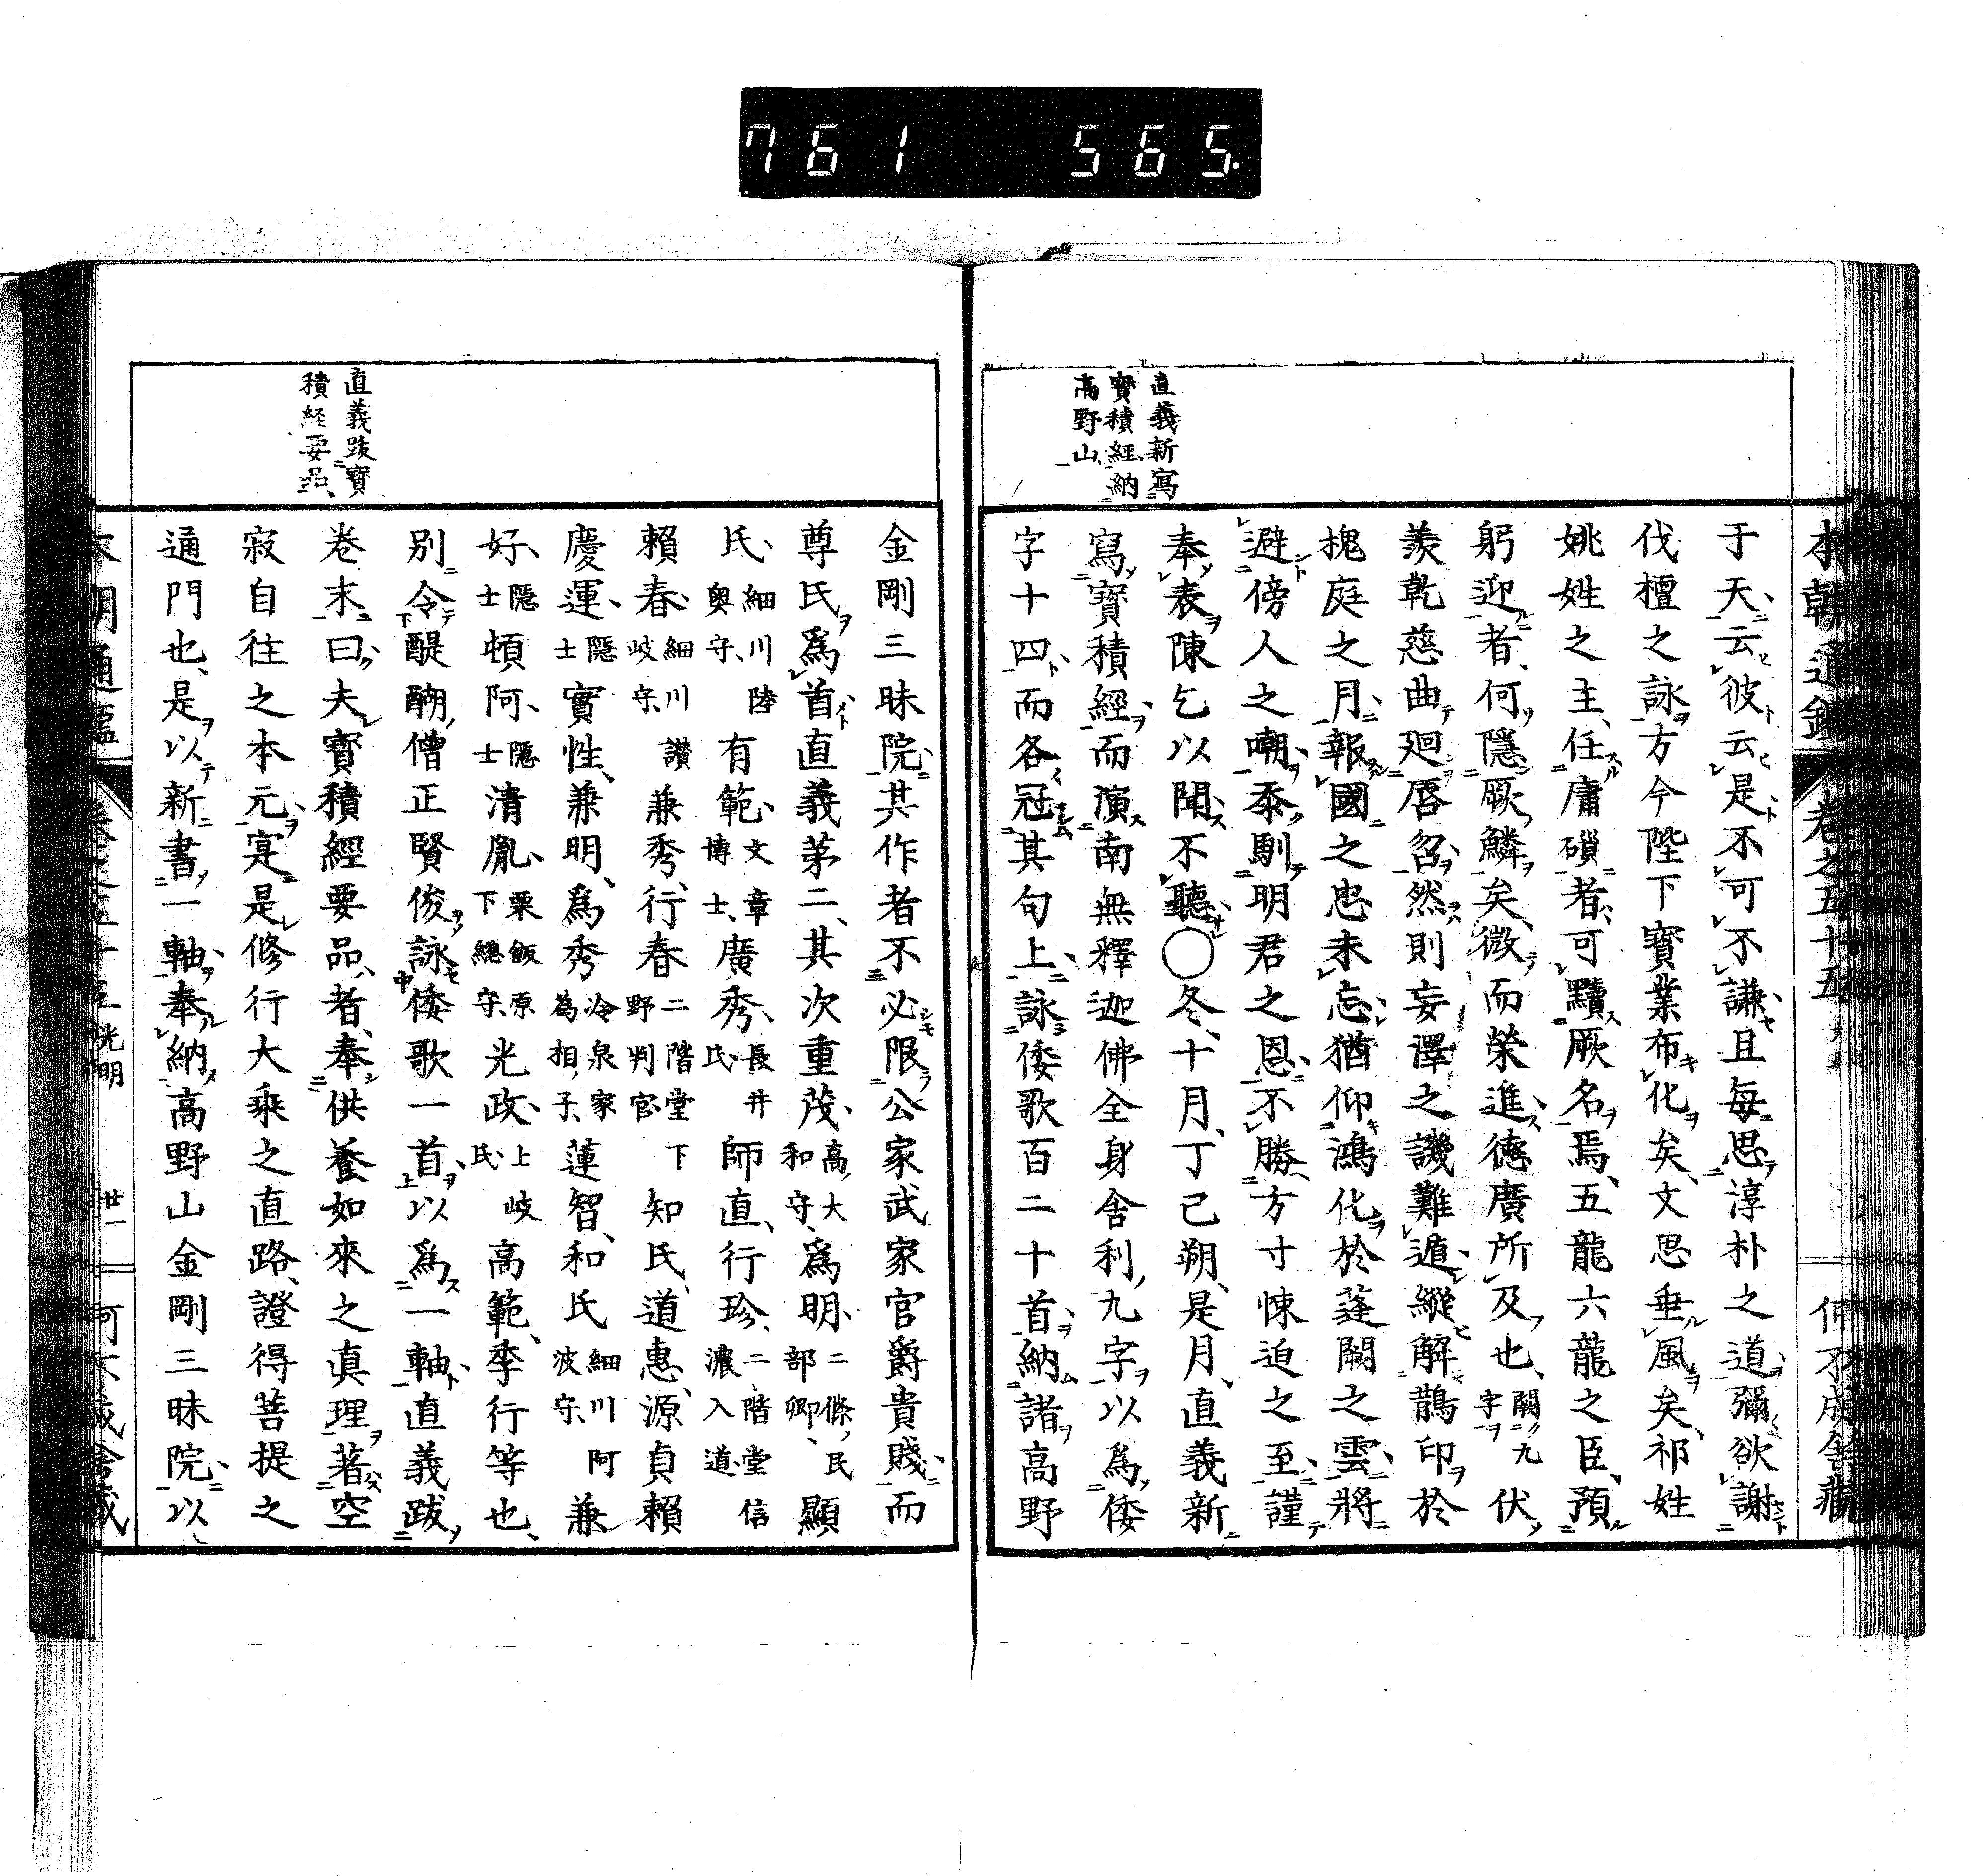 761 565.
本朝通鑑 卷之五十五
直義新寫
寶積經納
高野山
于天云彼云是不可不謙且每思淳朴之道彌欲謝
伐檀之詠方今陛下寶業布化矣、文思垂風矣、祁姓
姚姓之主、任庸碅者、可黷厥名焉、五龍六龍之臣、預
躬迎者、何隱厥鱗矣、微而榮進德廣所及也、闕九字伏
羨乾慈曲廻唇詔然則妄澤之譏難遁、縱解鵲印於
槐庭之月、報國之忠未忘、猶仰鴻化於蓬闕之雲、將
避傍人之嘲、忝馴明君之恩、不勝方寸悚迫之至、謹
奉表陳乞以聞不聽〇冬、十月、丁己朔、是月、直義新
寫寶積經、而演南無釋迦佛全身舍利、九字以為倭
字十四、而各冠其句上、詠倭歌百二十首、納諸高野
金剛三昧院、其作者不必限公家武家官爵貴賤、而
尊氏為首、直義第二、其次重茂、高、大和守、為明、二條、民部卿、顯
氏、細川陸奧守、有範、文章博士、廣秀、長井氏、師直、行珍、二階堂信濃入道、
賴春、細川讚岐守、兼秀、行春二階堂下野判官、知氏、道惠、源貞賴
慶運、隱士實性、兼明、為秀冷泉家為相子、蓮智、和氏細川阿波守、兼
好、隱士頓阿、隱士清胤、粟飯原下總守、光政、土岐氏、高範、季行等也、
別令醍醐僧正賢俊詠倭歌一首、以為一軸、直義跋
直義跋寶
積經要品、
卷末曰、夫寶積經要品者、奉供養如來之真理、著空
寂自往之本元、寔是修行大乘之直路、證得菩提之
通門也、是以新書一軸、奉納高野山金剛三昧院、以
本朝通鑑 卷之五十五 光明 卅一